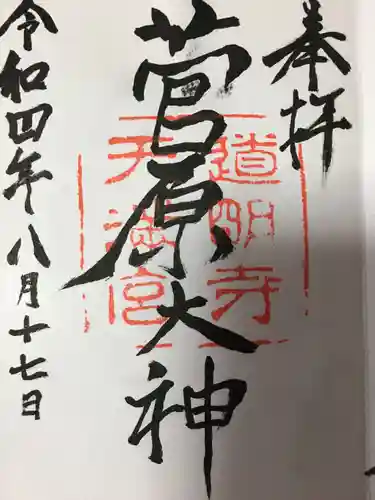 奉拝
菅原大神
道明寺
天満宮
令和四年八月十七日